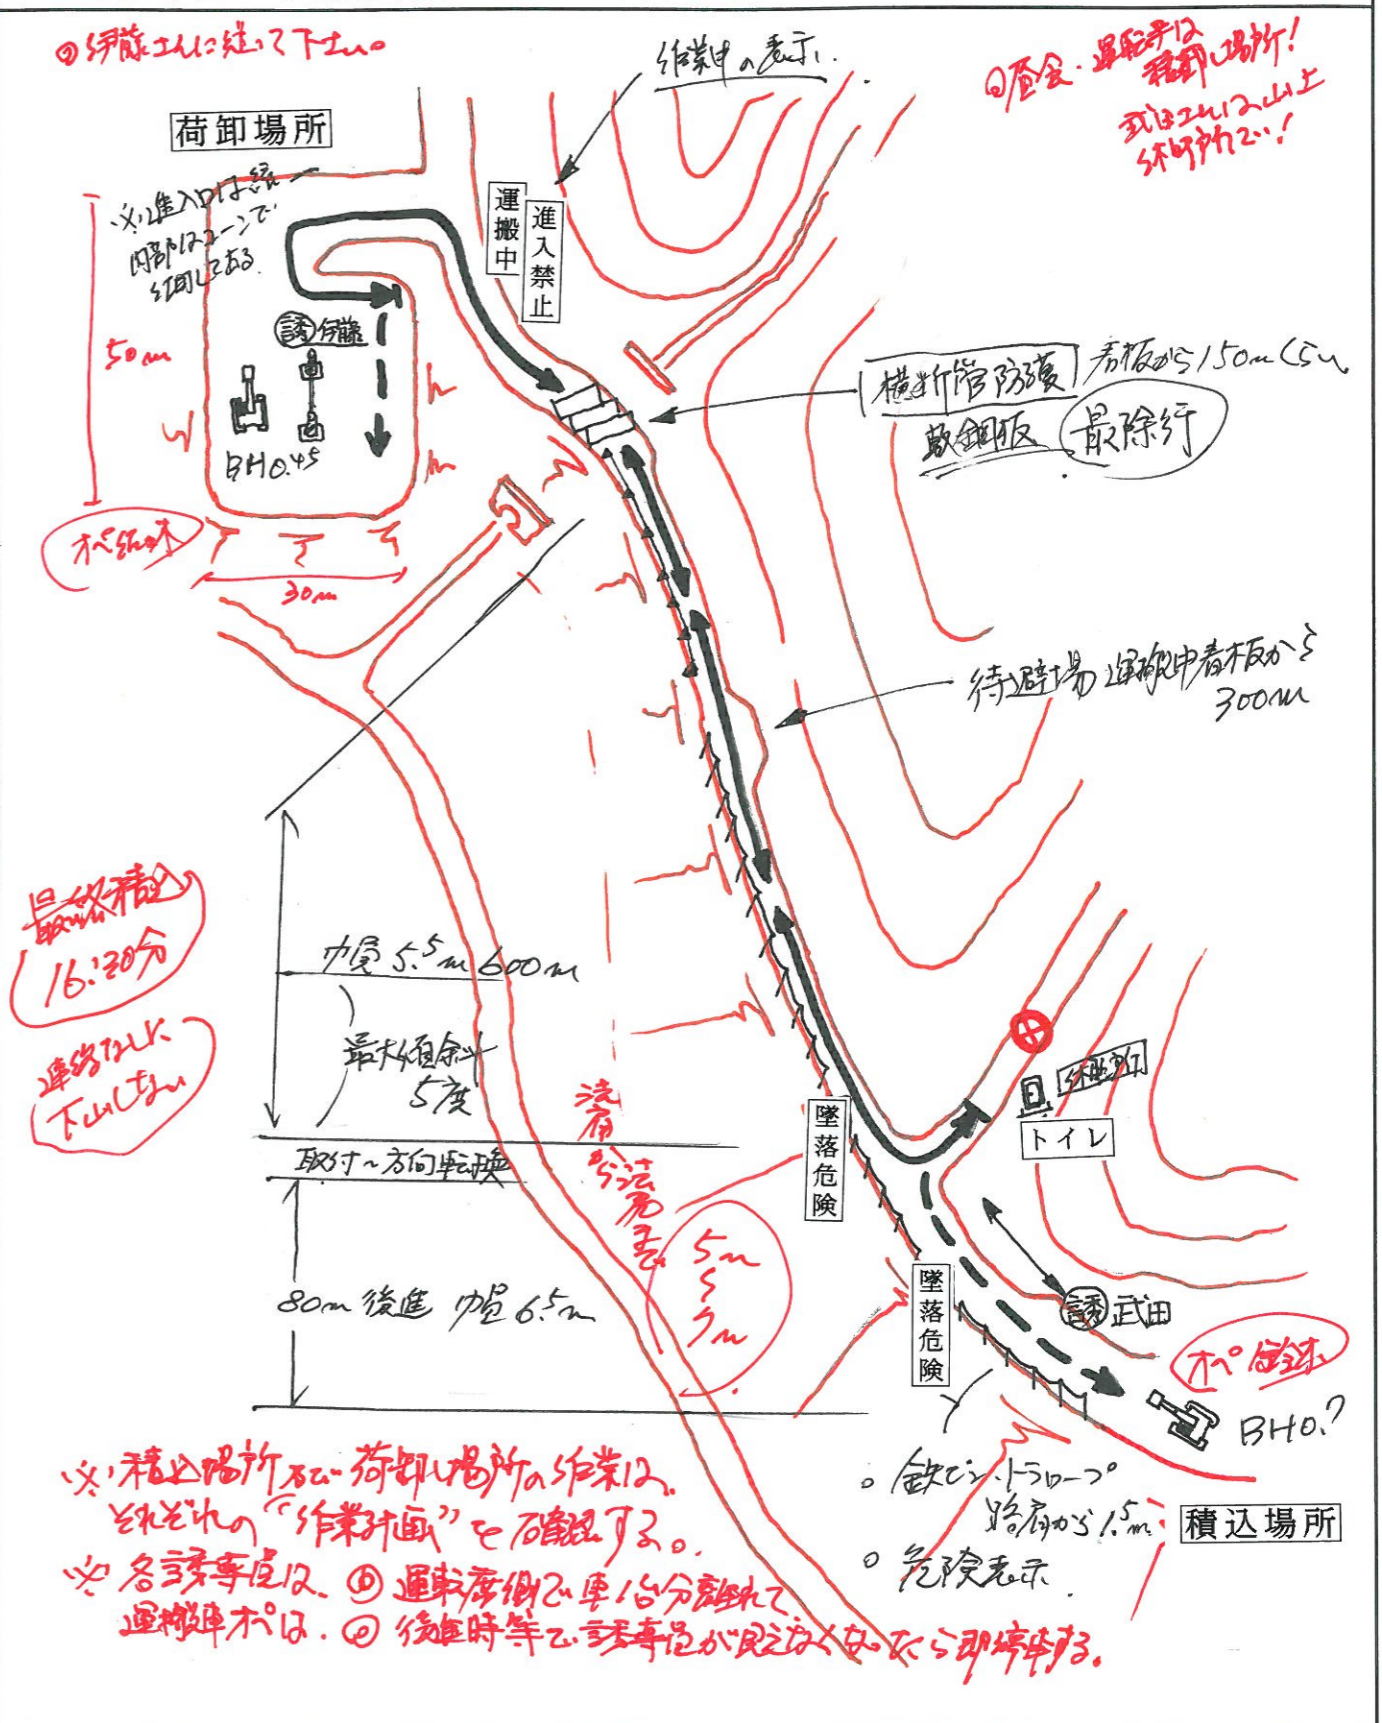 伊藤さんに従って下さい。
作業中の表示.
昼食・運転手は
積卸し場所!
武田さんは山上
休憩所でい!
荷卸場所
※進入口は統一
内部はコーンで
区画してある.
運搬中
進入禁止
50m
誘 伊藤
BH0.45
30m
横断管防護
看板から150mくらい
敷鋼板
最除行
待避場 運搬中看板から
300m
最終積込
16:30分
連絡なしに
下山しない
巾員 5.5m 600m
最大傾斜
5度
取付~方向転換
80m 後進 巾員 6.5m
法肩から法尻まで
5m
7m
墜落危険
墜落危険
休憩所
トイレ
誘 武田
オペ 鈴木
BH0.7
。鉄ピン、トラロープ
路肩から1.5m
。危険表示
積込場所
※ 積込場所及び荷卸し場所の作業は、
それぞれの"作業計画"を再確認する。
※ 各誘導員は、運転席側で車1台分離れて、
運搬車オペは、後進時等で誘導員が見えなくなったら即停車する。